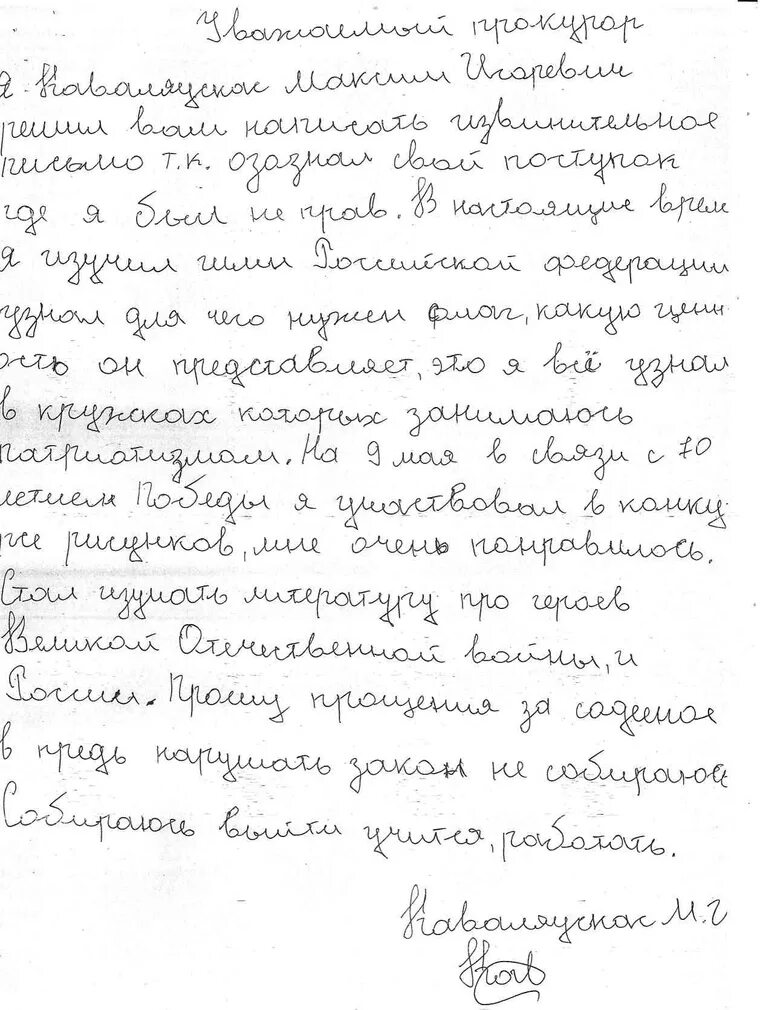 Уважаемый прокурор
Я Каваляускас Максим Игоревич
решил вам написать извинительное
письмо т.к. озазнал свой поступак
где я был не прав. В настоящие врем
я изучил гимн Российской федерации
узнал для чего нужен флаг, какую ценн
ость он представляет, это я всё узнал
в кружках которых занимаюсь
патриотизмом. На 9 мая в связи с 70
летием Победы я участвовал в конку
рсе рисунков, мне очень понравилось.
Стал изучать литературу про героев
Великой Отечественной войны, и
России. Прошу прощения за содееное
в предь нарушать закон не собираюсь
Собираюсь выйти учится, работать.
Каваляускас М.И
Кав